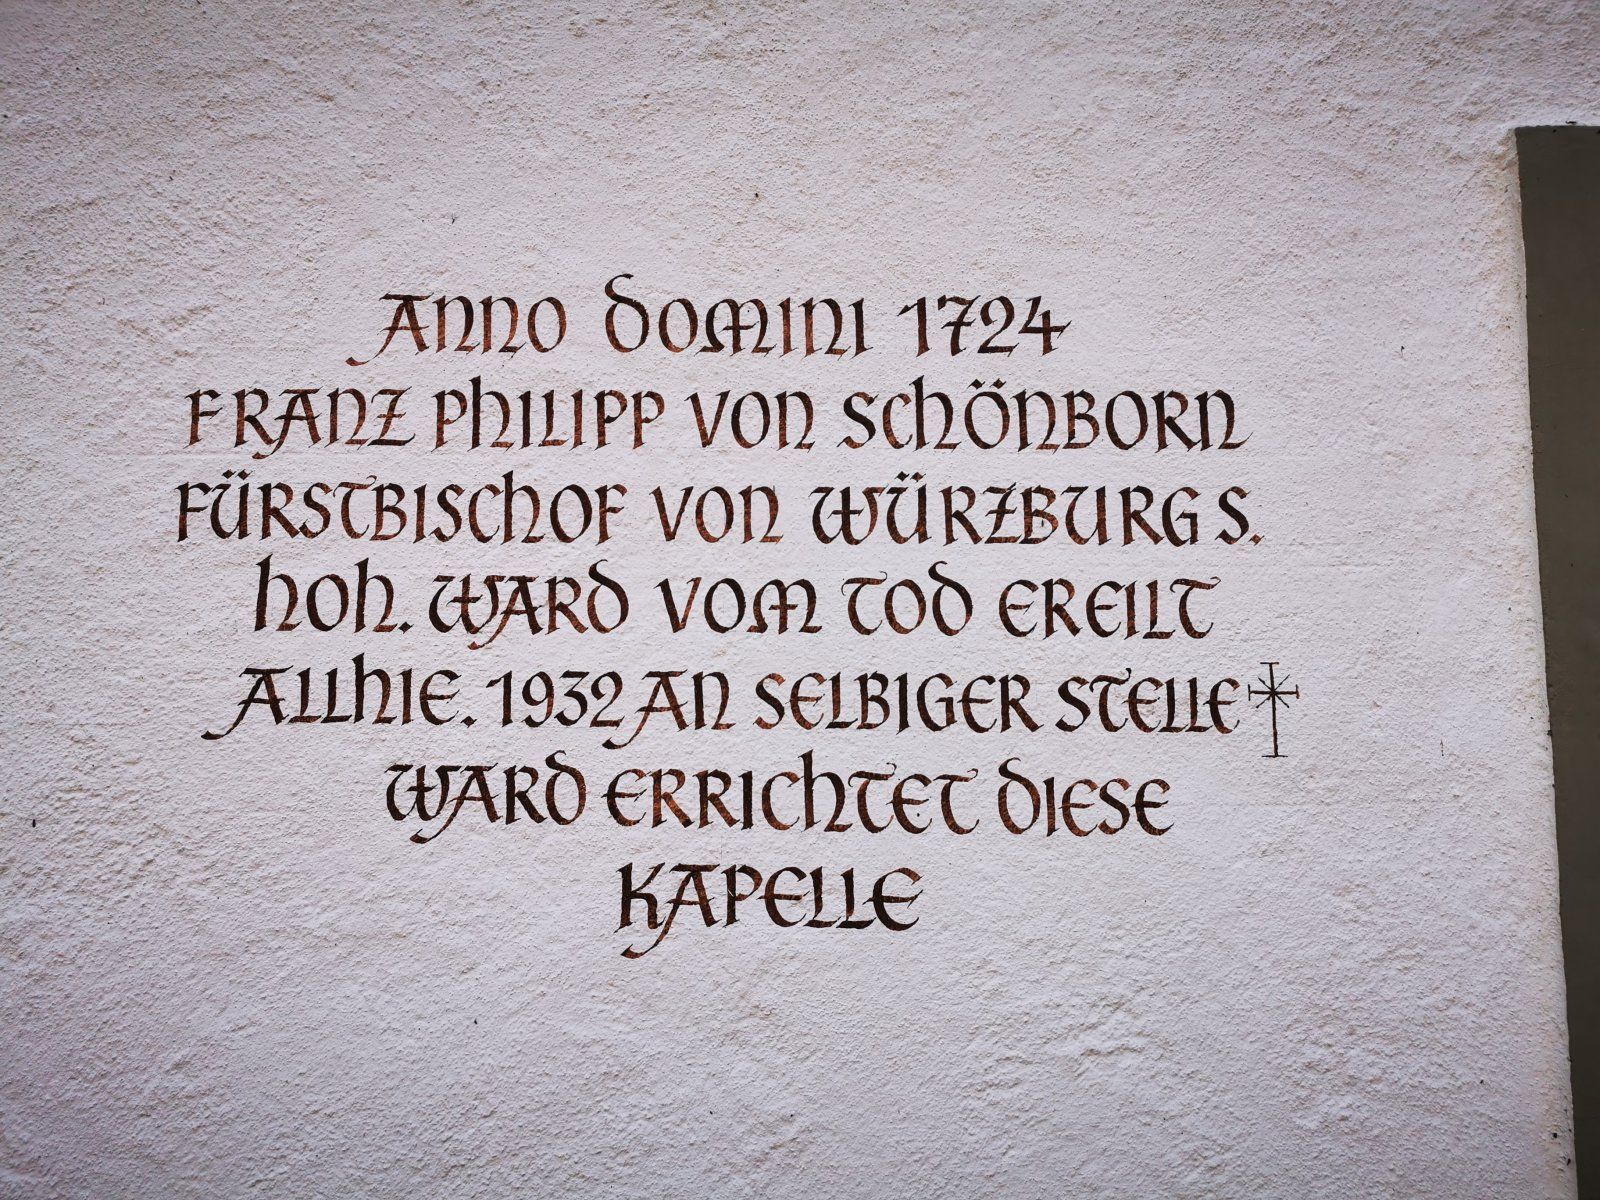 ANNO DOMINI 1724
FRANZ PHILIPP VON SCHÖNBORN
FÜRSTBISCHOF VON WÜRZBURG S.
HOH. WARD VOM TOD EREILT
ALLHIE. 1932 AN SELBIGER STELLE
WARD ERRICHTET DIESE
KAPELLE